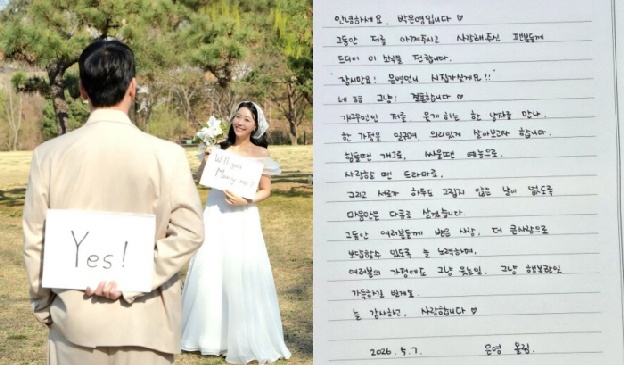 Yes!
Will you marry me?
안녕하세요. 박은영입니다 ♡
그동안 저를 아껴주시고 사랑해주신 팬분들께
드디어 이 소식을 전합니다.
"잠시만요! 은영언니 시집가실게요!!"
네 저 그냥! 결혼합니다 ♡
개그우먼인 저를 웃게 하는 한 남자를 만나,
한 가정을 이루며 의리있게 살아보고자 합니다.
힘들땐 개그로, 싸울땐 예능으로
사랑할 땐 드라마로,
그리고 서로가 하루도 그립지 않은 날이 없도록
마음만은 다큐로 살겠습니다.
그동안 여러분들께 받은 사랑, 더 큰사랑으로
보답할수 있도록 늘 노력하며,
여러분의 가정에도 그냥 웃는일, 그냥 행복한일
가득하길 빌게요.
늘 감사하고, 사랑합니다 ♡
2026. 5. 7. 은영 올림.